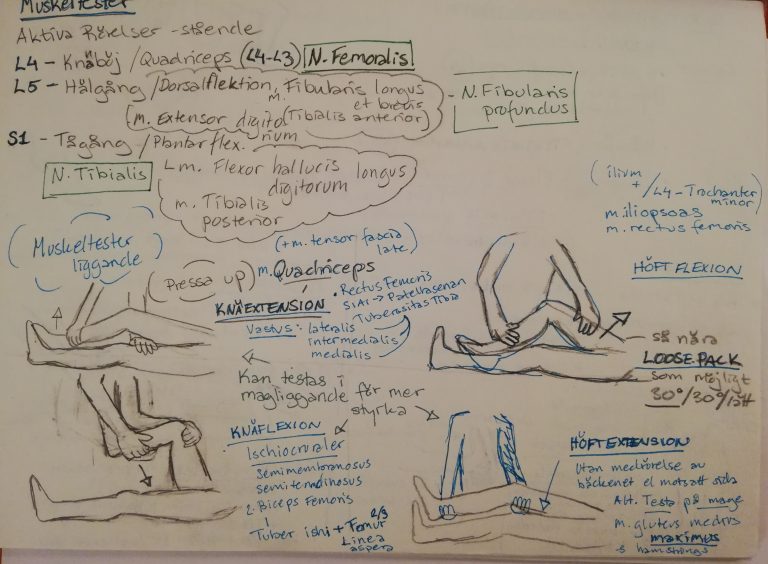 Muskeltester
Aktiva Rörelser - stående
L4 - Knäböj / Quadriceps (L4-L3) N. Femoralis
L5 - Hälgång / Dorsalflektion, m. Fibularis longus
et brevis
(m. Extensor digitorium (Tibialis anterior)
- N. Fibularis
profundus
S1 - Tågång / Plantarflex.
N. Tibialis
m. Flexor hallucis longus
digitorum
m. Tibialis
posterior
(Muskeltester
liggande)
(Pressa up)
(+ m. tensor fascia
late)
m. Quadriceps
KNÄEXTENSION
• Rectus Femoris
SIAI → Patellasenan
Tuberositas Tibia
Vastus: lateralis
intermedialis
medialis
Kan testas i
magliggande för mer
styrka
(ilium
+ / L4 - Trochanter
minor)
m. iliopsoas
m. rectus femoris
HÖFTFLEXION
så nära
LOOSE PACK
som möjligt
30°/30°/lätt
KNÄFLEXION
• Ischiocruraler
semimembranosus
semitendinosus
2. Biceps Femoris
Tuber ishi + Femur 2/3
Linea
aspera
HÖFTEXTENSION
Utan medrörelse av
bäckenet el motsatt sida
Alt. Testa på mage
m. gluteus medius
maximus
hamstrings